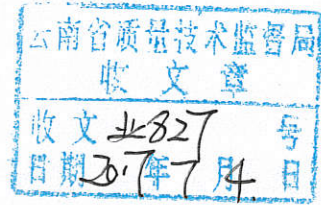 云南省质量技术监督局
收文章
收文业827号
日期2017年7月4日